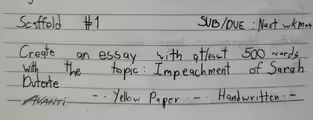 Scaffold #1 SUB/DUE: Next wk mon
Create an essay with atleast 500 words
with the topic: Impeachment of Sarah
Duterte
AVANTI - · Yellow Paper · - Handwritten · -